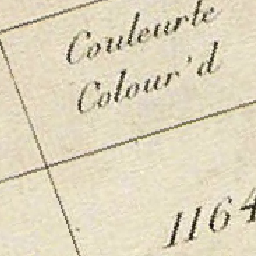 Couleurte
Colour'd
1164